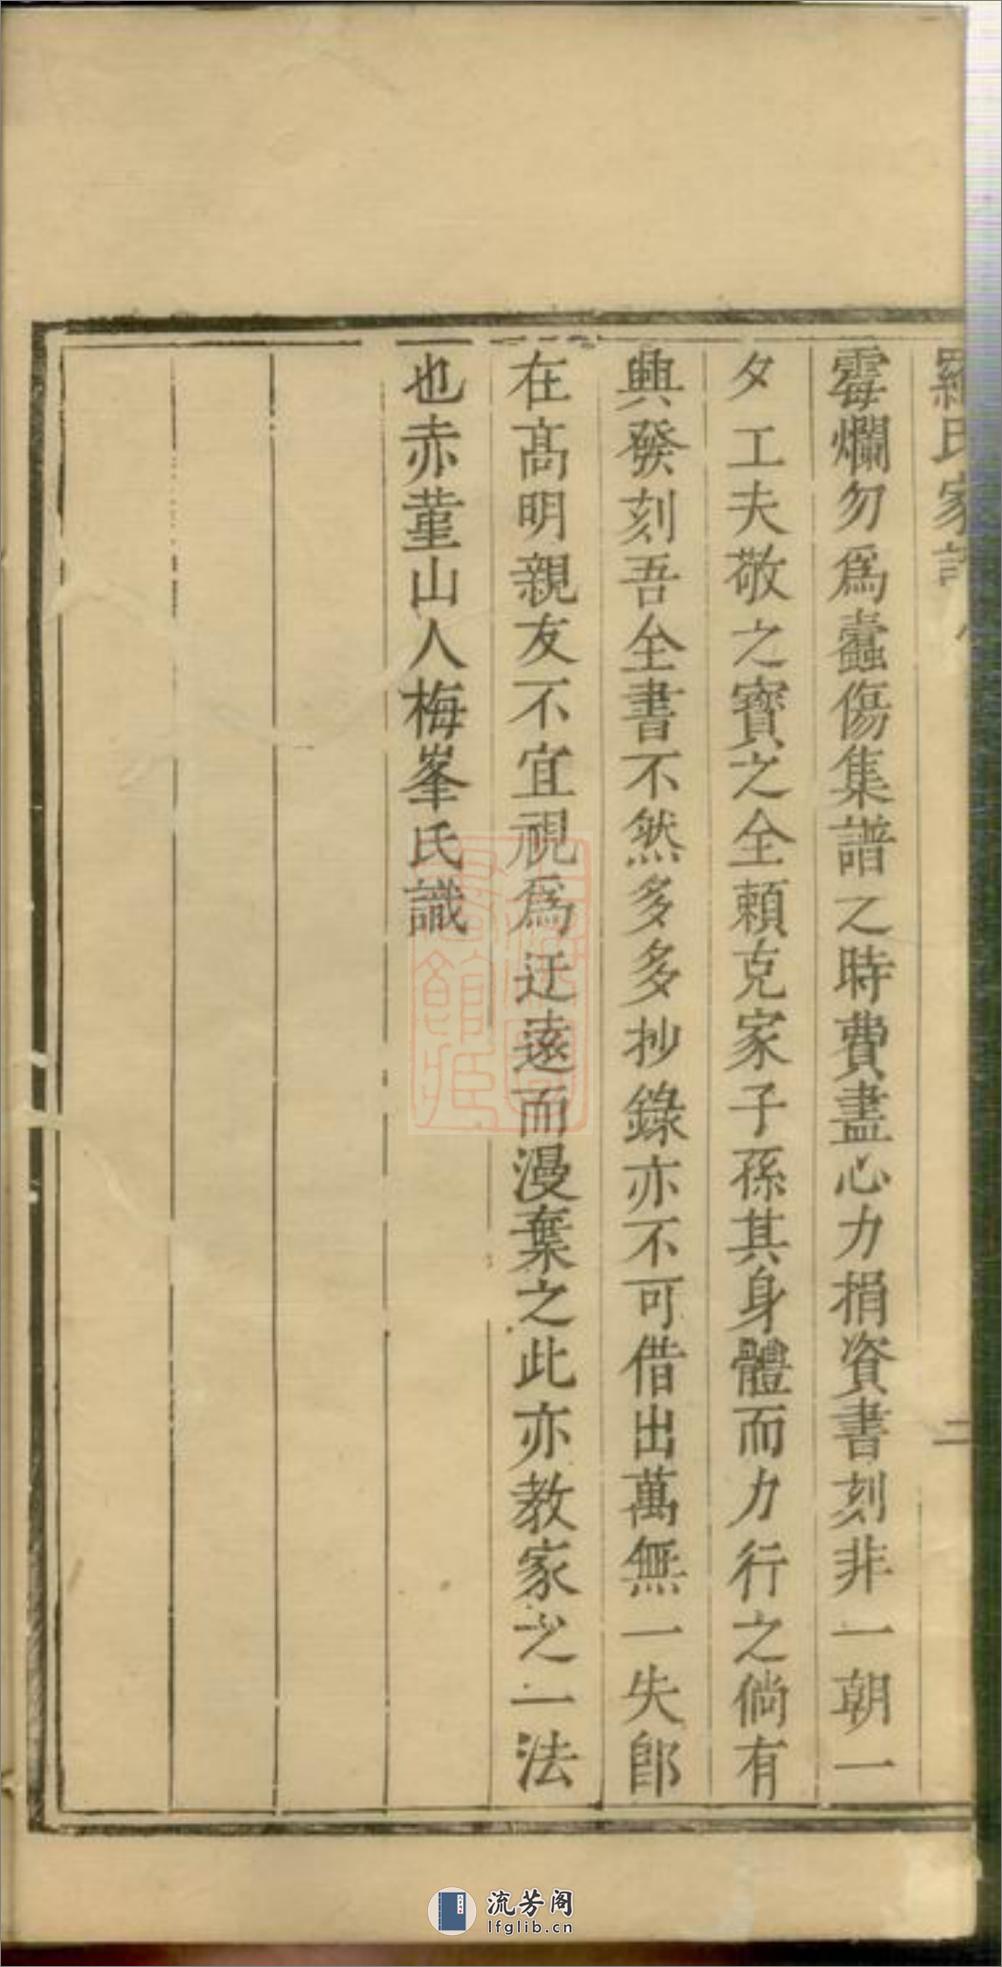 羅氏家譜
二
霉爛勿爲蠹傷集譜之時費盡心力捐資書刻非一朝一
夕工夫敬之寳之全頼克家子孫其身體而力行之倘有
興發刻吾全書不然多多抄錄亦不可借出萬無一失卽
在髙明親友不宜視爲迂逺而漫棄之此亦教家之一法
也赤堇山人梅峯氏識
流芳阁
lfglib.cn